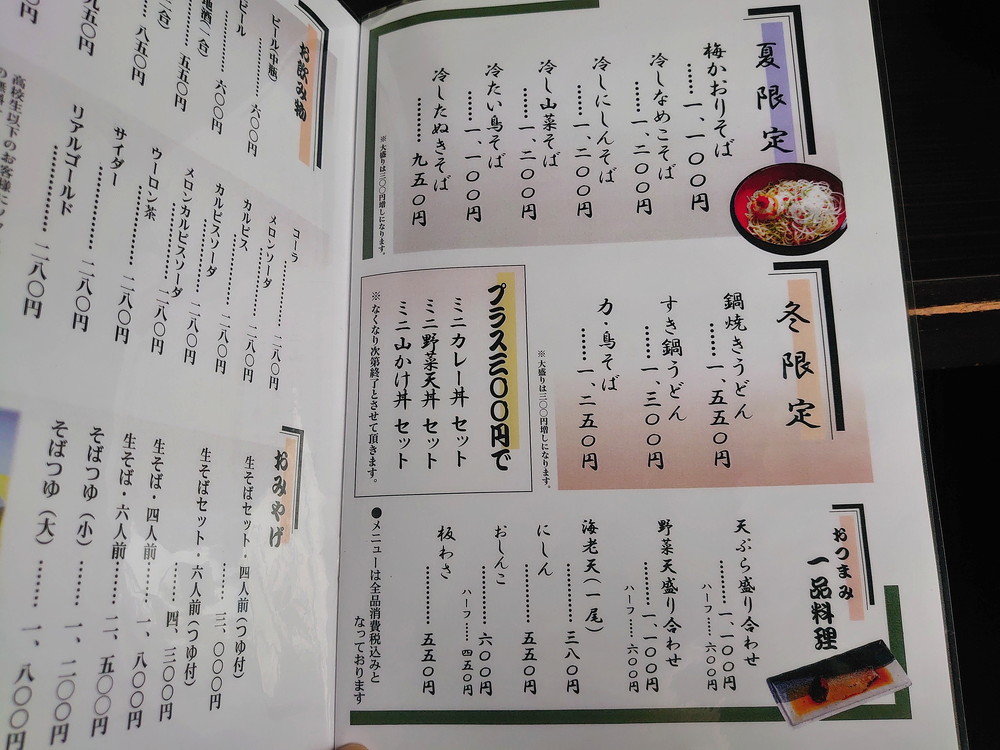 夏限定
梅かおりそば……一、一〇〇円
冷しなめこそば……一、二〇〇円
冷しにしんそば……一、二〇〇円
冷し山菜そば……一、二〇〇円
冷たい鳥そば……一、一〇〇円
冷したぬきそば……九五〇円
※大盛りは三〇〇円増しになります。
冬限定
鍋焼きうどん……一、五五〇円
すき鍋うどん……一、三〇〇円
力・鳥そば……一、二五〇円
※大盛りは三〇〇円増しになります。
プラス三〇〇円で
ミニカレー丼 セット
ミニ野菜天丼 セット
ミニ山かけ丼 セット
※なくなり次第終了とさせて頂きます。
おつまみ
一品料理
天ぷら盛り合わせ……一、一〇〇円
ハーフ……六〇〇円
野菜天盛り合わせ……一、一〇〇円
ハーフ……六〇〇円
海老天(一尾)……三八〇円
にしん……五五〇円
おしんこ……六〇〇円
ハーフ……四五〇円
板わさ……五五〇円
●メニューは全品消費税込みと
なっております
お飲み物
ビール(中瓶)……六〇〇円
ビール……六〇〇円
地酒(一合)……五五〇円
二合)……八五〇円
九五〇円
コーラ……二八〇円
メロンソーダ……二八〇円
カルピス……二八〇円
カルピスソーダ……二八〇円
メロンカルピスソーダ……二八〇円
ウーロン茶……二八〇円
サイダー……二八〇円
リアルゴールド……二八〇円
高校生以下のお客様に
おみやげ
生そばセット・四人前(つゆ付)……三、〇〇〇円
生そばセット・六人前(つゆ付)……四、三〇〇円
生そば・四人前……一、八〇〇円
生そば・六人前……二、五〇〇円
そばつゆ(小)……一、二〇〇円
そばつゆ(大)……一、八〇〇円